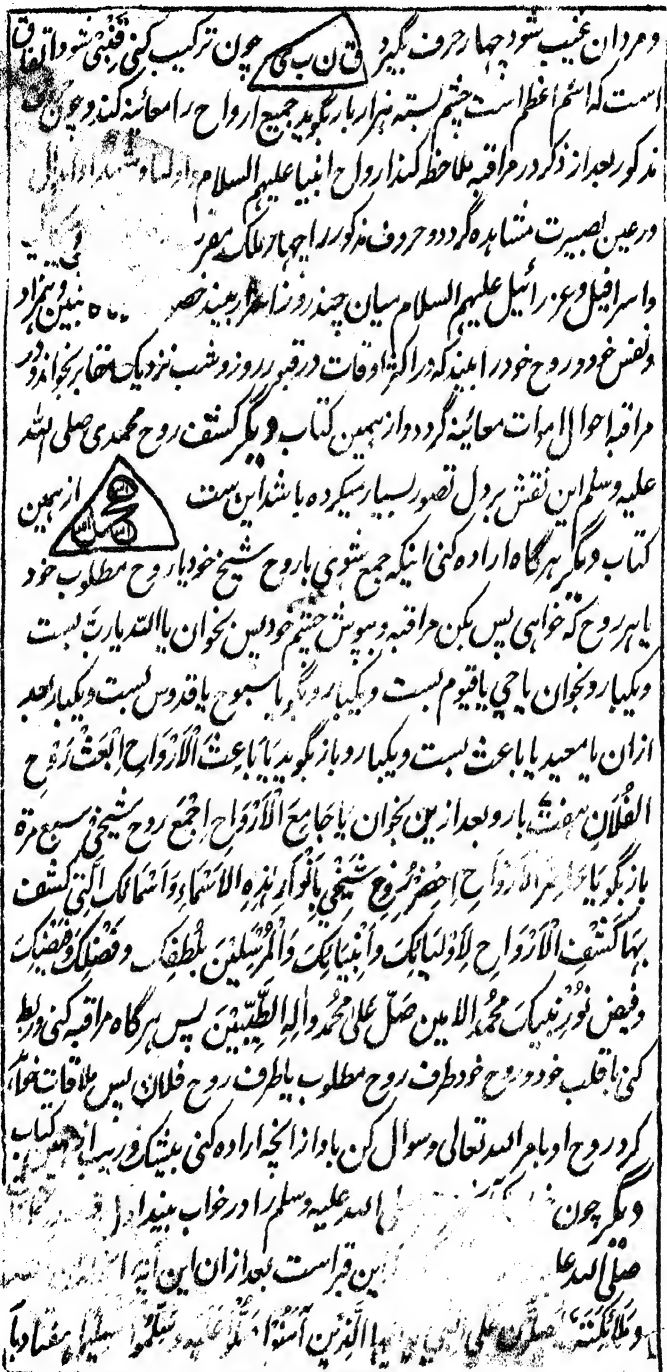 و مردان غیب شود چهار حرف بگیرد ق ن ب ی چون ترکیب کنی قنبی شود اتفاق
است که اسم اعظم است چشم بسته هزار بار بگوید جمیع ارواح را معائنه کند و چون
مذکور بعد از ذکر در مراقبه ملاحظه کند ارواح انبیا علیهم السلام و اولیا و
در عین بصیرت مشاهده گردد و حروف مذکور را چهار ملک
و اسرافیل و عزرائیل علیهم السلام میان چند روز بیند و همزاد
و نفس خود و روح خود را ببیند که در اکثر اوقات در قبور روز و شب نزدیک مقابر بخواند و در
مراقبه احوال اموات معائینه گردد و از همین کتاب دیگر کشف روح محمدی صلی الله
علیه وسلم این نقش بر دل تصور بسیار میکرده باشد این ست از همین
کتاب دیگر هرگاه اراده کنی اینکه جمع شوی با روح شیخ خود یا روح مطلوب خود
یا هر روح که خواهی پس بکن مراقبه و بپوش چشم خود پس بخوان یا الله یا رب بست
و یکبار و بخوان یا حی یا قیوم بست و یکبار و بگو یا سبوح یا قدوس بست و یکبار بعد
ازان یا معید یا باعث بست و یکبار و باز بگوید یَا بَاعِثَ الْاَرْوَاحِ اِبْعَثْ رُوْحَ
الْفُلَانِ هفت بار و بعد ازین بخوان یَا جَامِعَ الْاَرْوَاحِ اِجْمَعْ روح شیخی سبع مرة
باز بگو یَا الْاَرْوَاحِ اِحْضِرْ رُوْحَ شَیْخِیْ بِاَنْوَارِ هٰذِهِ الْاَسْمَاءِ وَاَسْمَائِكَ الَّتِیْ كَشَفَ
بِهَا كَشْفَ الْاَرْوَاحِ لِاَوْلِیَائِكَ وَاَنْبِیَائِكَ وَالْمُرْسَلِیْنَ بِلُطْفِكَ وَ فَضْلِكَ وَ فَیْضِكَ
وَ فَیْضِ نُوْرِ نَبِیِّكَ مُحَمَّدِ الامین صَلِّ عَلٰی مُحَمَّدٍ وَاٰلِهِ الطَّیِّبِیْنَ پس هرگاه مراقبه کنی و ربط
کنی با قلب خود و روح خود طرف روح مطلوب یا طرف روح فلان پس ملاقات خواهد
کرد روح او بامر الله تعالی و سوال کن با و از انچه اراده کنی بیشک و ریب از همین کتاب
دیگر چون الله علیه وسلم را در خواب بیند
صلی الله این قبر است بعد ازان این آیه
وَمَلٰئِكَتَهٗ یُصَلُّوْنَ عَلَی النَّبِیِّ یٰاَیُّهَا الَّذِیْنَ اٰمَنُوْا صَلُّوْا عَلَیْهِ وَسَلِّمُوْا تَسْلِیْمًا هفتاد بار